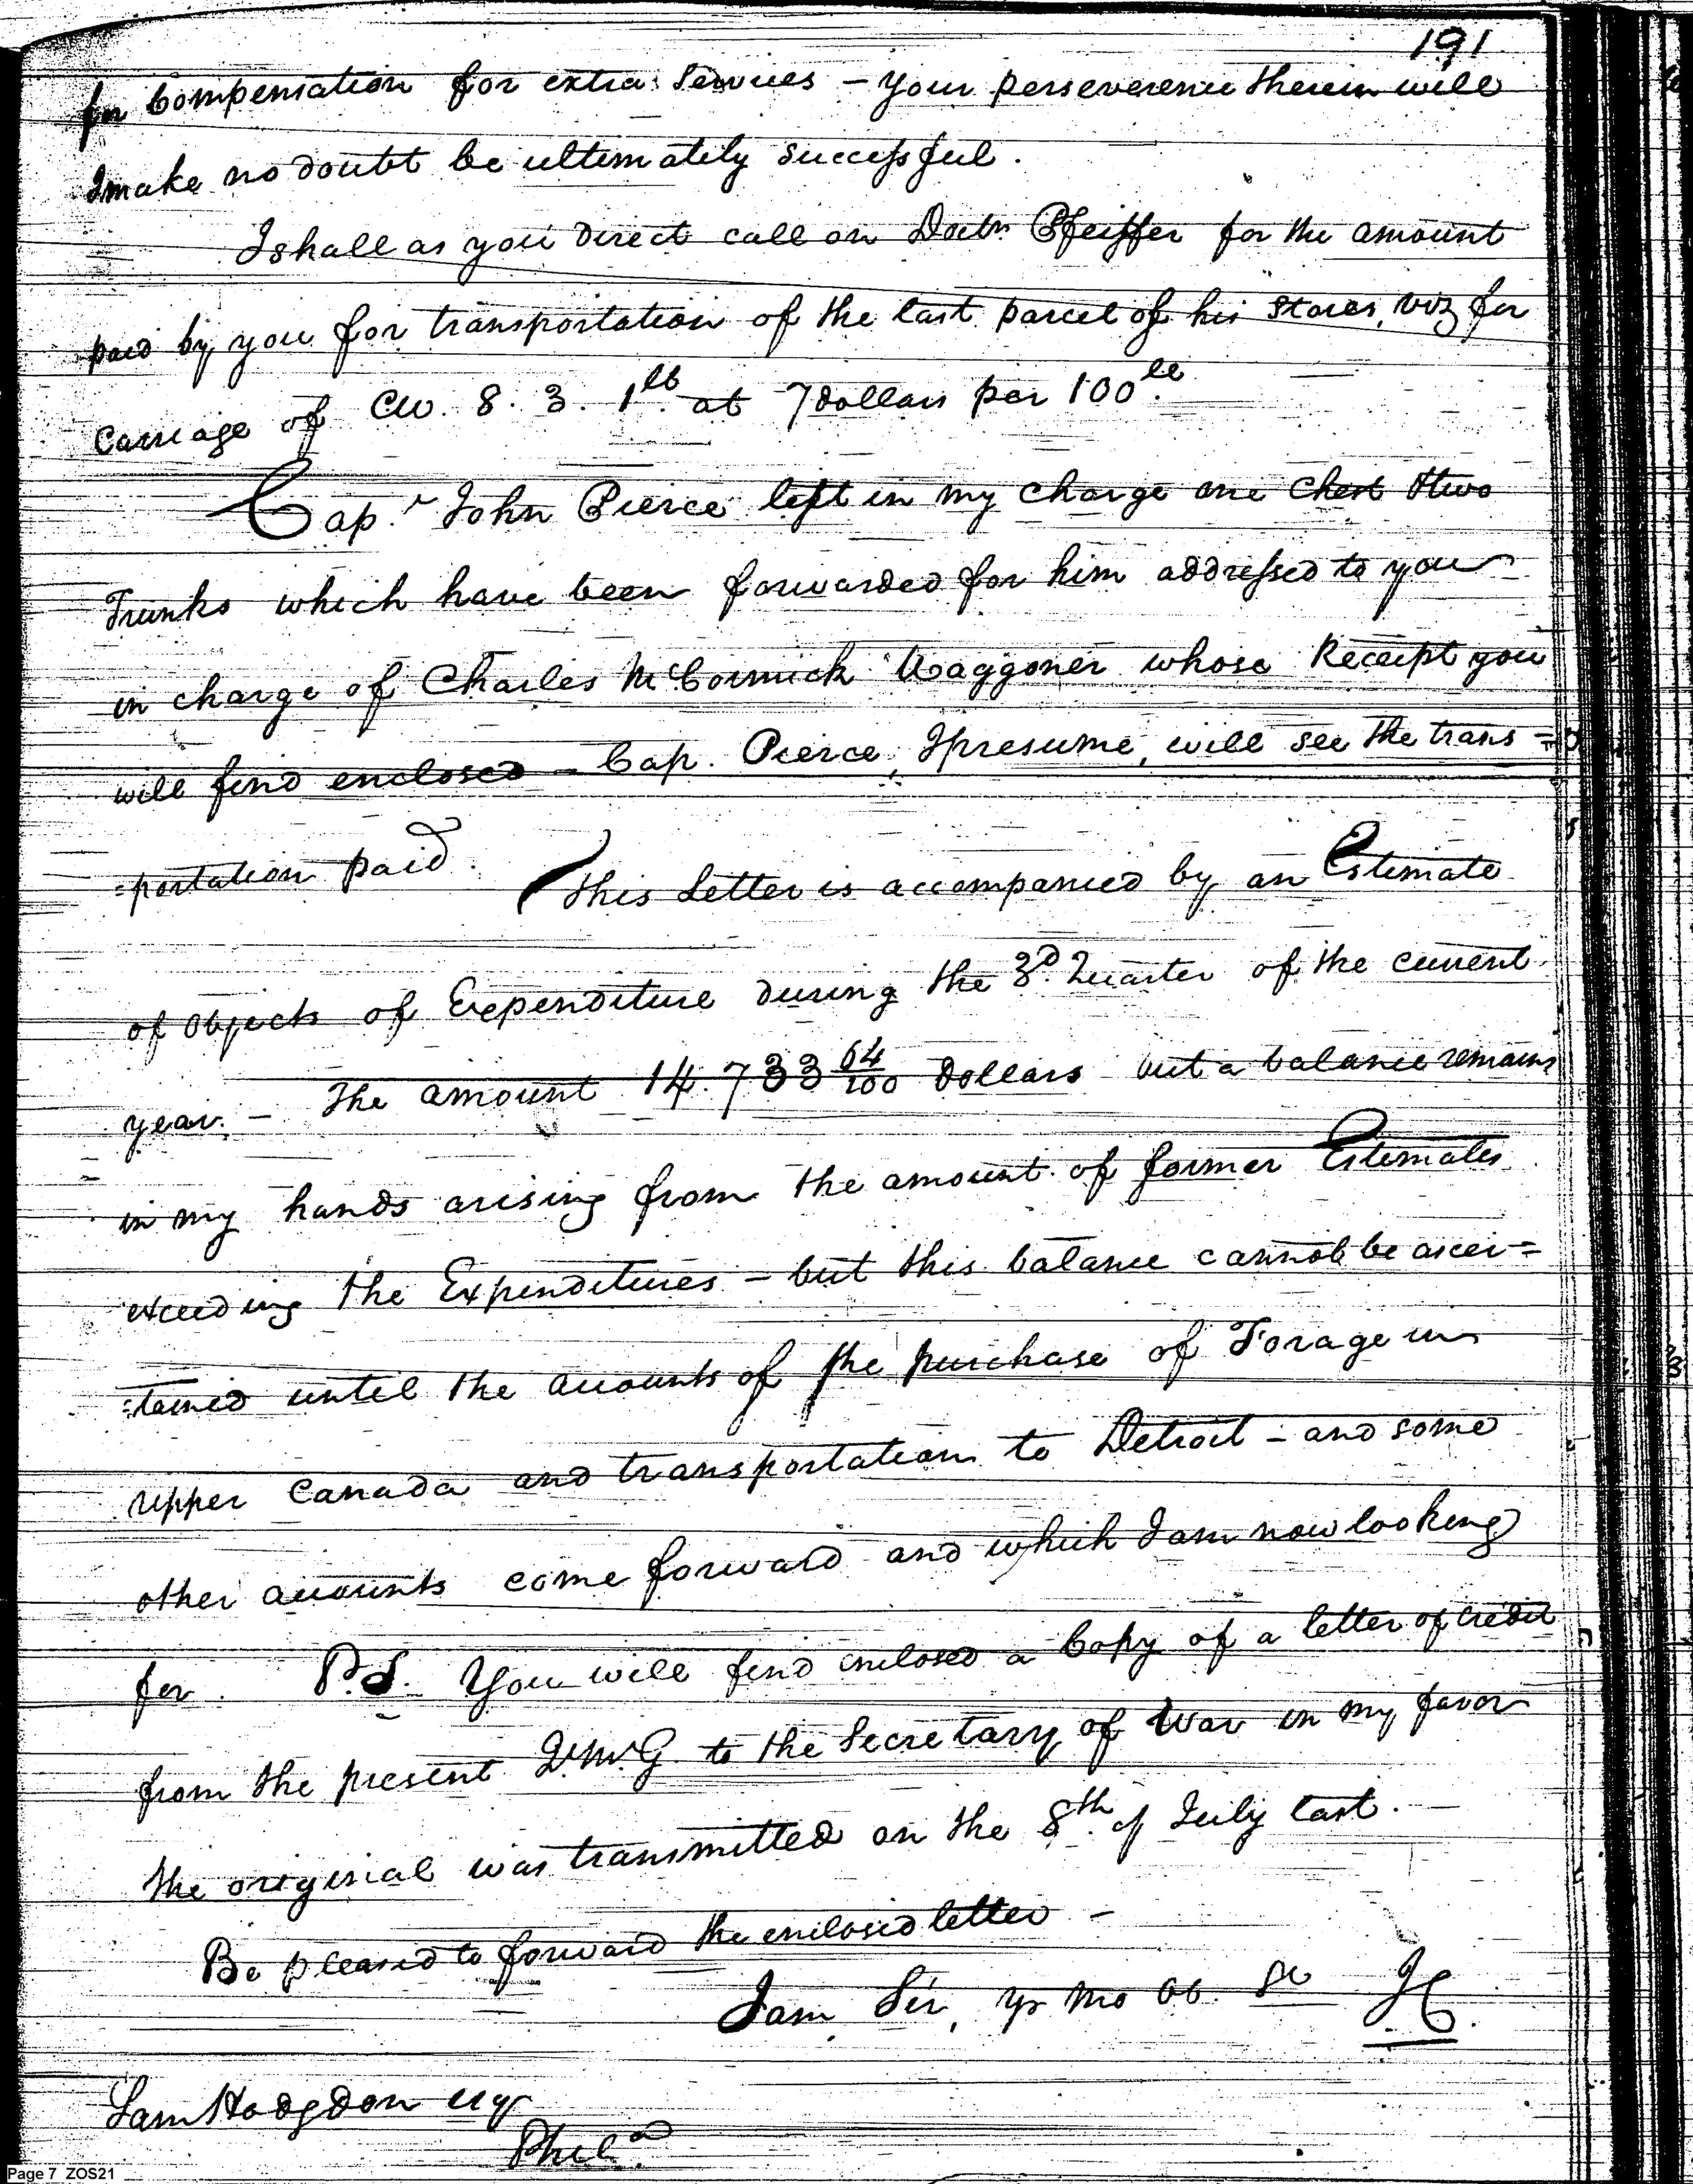 191
for Compensation for extra Services – your perseverence therein will
I make no doubt be ultimately successful.
I shall as you direct call on Doctr. Pfeiffer for the amount
paid by you for transportation of the last parcel of his Stores, viz for
Carriage of Cw. 8. 3. 1lb. at 7 dollars per 100lb.
Cap. John Pierce left in my charge one Chest & two
Trunks which have been forwarded for him addressed to you
in charge of Charles McCormick Waggoner whose Receipt you
will find enclosed – Cap. Pierce, I presume, will see the trans=
=portation paid. This Letter is accompanied by an Estimate
of Objects of Expenditure during the 3d. Quarter of the current
year. – The amount 14.733 64/100 Dollars but a balance remains
in my hands arising from the amount of former Estimates
exceeding the Expenditures – but this balance cannot be ascer=
=tained until the accounts of the purchase of Forage in
upper Canada and transportation to Detroit – and some
other accounts come forward and which I am now looking
for. P.S. You will find inclosed a Copy of a letter of credit
from the present Q.M.G. to the Secretary of War in my favor
the original was transmitted on the 8th. of July last. –
Be pleased to forward the enclosed letter –
I am Sir, yr mo ob. Se
Sam Hodgdon esqr
Phila.
Page 7 ZOS21